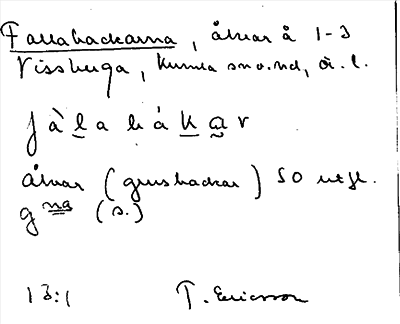 Fallabackarna, åkrar å 1-3
Vissberga, Kumla sn o. hd, Ö. l.
fàlabákar
åkrar (grusbackar) SO utfl.
gna (s.)
13:1 T. Ericsson